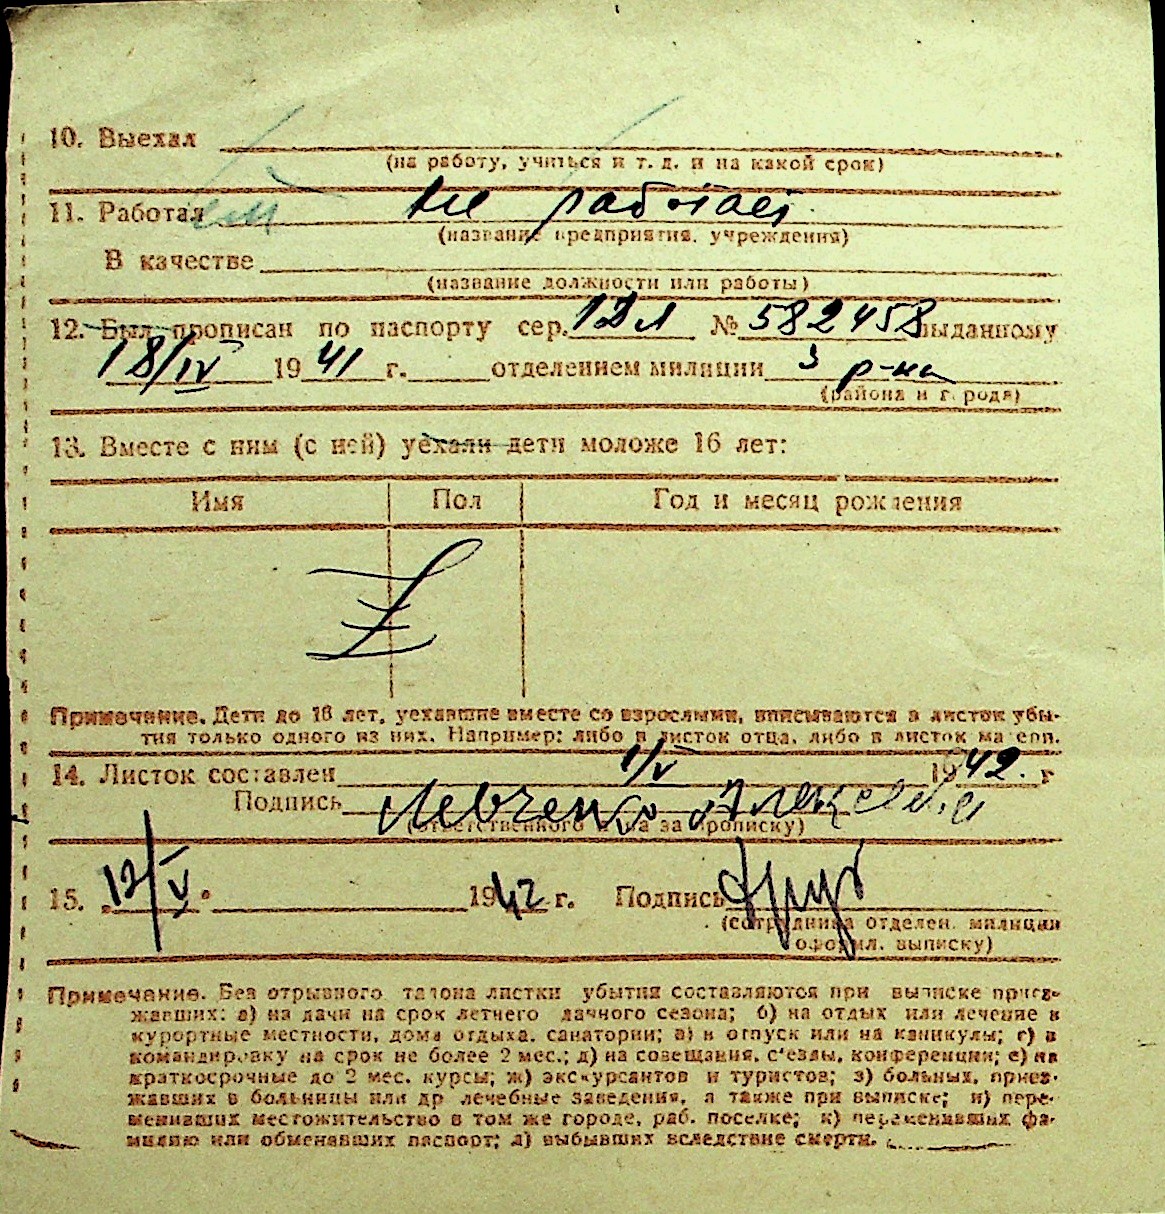 10. Выехал
(на работу, учиться и т. д. и на какой срок)
11. Работал не работает
(название предприятия, учреждения)
В качестве
(название должности или работы)
12. Был прописан по паспорту сер. № 582458 выданному
18/IV 1941 г. отделением милиции 3 р-на
(района и города)
13. Вместе с ним (с ней) уехали дети моложе 16 лет:
Имя Пол Год и месяц рождения
Z
Примечание. Дети до 16 лет, уехавшие вместе со взрослыми, вписываются в листок убы-
тия только одного из них. Например: либо в листок отца, либо в листок матери.
14. Листок составлен 1/V 1942. г
Подпись Левченко
(ответственного лица за прописку)
15. 12/V 1942 г. Подпись
(сотрудника отделен. милиции
оформл. выписку)
Примечание. Без отрывного талона листки убытия составляются при выписке приез-
жавших: а) на дачи на срок летнего дачного сезона; б) на отдых или лечение в
курортные местности, дома отдыха, санатории; в) в отпуск или на каникулы; г) в
командировку на срок не более 2 мес.; д) на совещания, с'езды, конференции; е) на
краткосрочные до 2 мес. курсы; ж) экскурсантов и туристов; з) больных, приез-
жавших в больницы или др лечебные заведения, а также при выписке; и) пере-
менивших местожительство в том же городе, раб. поселке; к) переменивших фа-
милию или обменявших паспорт; л) выбывших вследствие смерти.